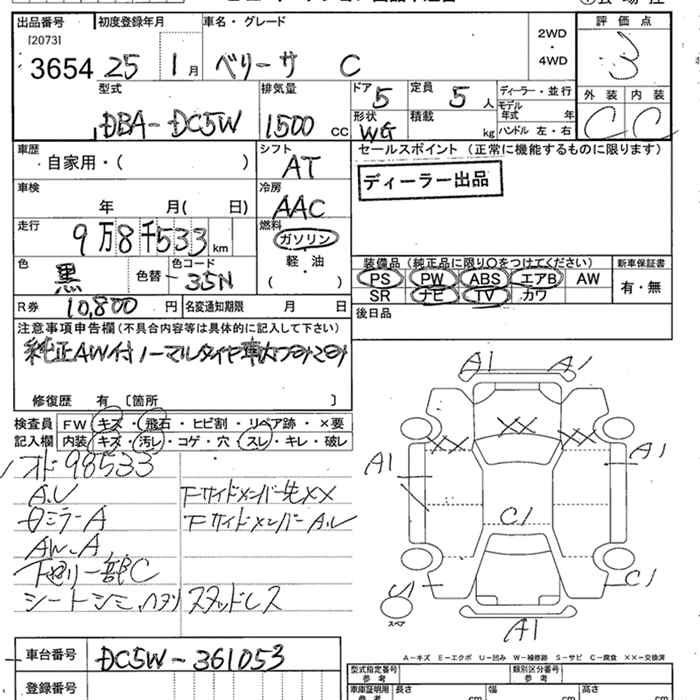 出品番号 初度登録年月 車名・グレード 評価点
[2073]
3654 25 1月 ベリーサ C 2WD・4WD 3
型式 排気量 ドア 5 定員 5人 ディーラー・並行 外装 内装
DBA-DC5W 1500 CC 形状 WG 積載 kg モデル年式 年 ハンドル 左・右 C C
車歴 自家用・( ) シフト AT セールスポイント (正常に機能するものに限ります)
車検 年 月( 日) 冷房 AAC ディーラー出品
走行 9万8千533km 燃料 ガソリン 軽・油 ( )
色 黒 色替 色コード 35N
装備品 (純正品に限り○をつけてください) 新車保証書
PS PW ABS エアB AW 有・無
SR ナビ TV カワ
R券 10,800円 名変通知期限 月 日 後日品
注意事項申告欄(不具合内容等は具体的に記入して下さい)
純正AW付ノーマルタイヤ
修復歴 有 〔箇所 〕
検査員 FW キズ・飛石・ヒビ割・リペア跡・×要
記入欄 内装 キズ・汚レ・コゲ・穴・スレ・キレ・破レ
98533
A.U 下サイドメンバー先XX
ミラーA 下サイドメンバーA.U
AW.A
下廻り一部C
シートシミ、ハタリ スタッドレス
A1 A1
XX XX XX
A1 A1
C1
C1
スペア
A1
A-キズ E-エクボ U-凹み W-補修跡 S-サビ C-腐食 XX-交換済
車台番号 DC5W-361053
登録番号
型式指定番号 参考 類別区分番号 参考
車庫証明用 参考 長さ cm 幅 cm 高さ cm